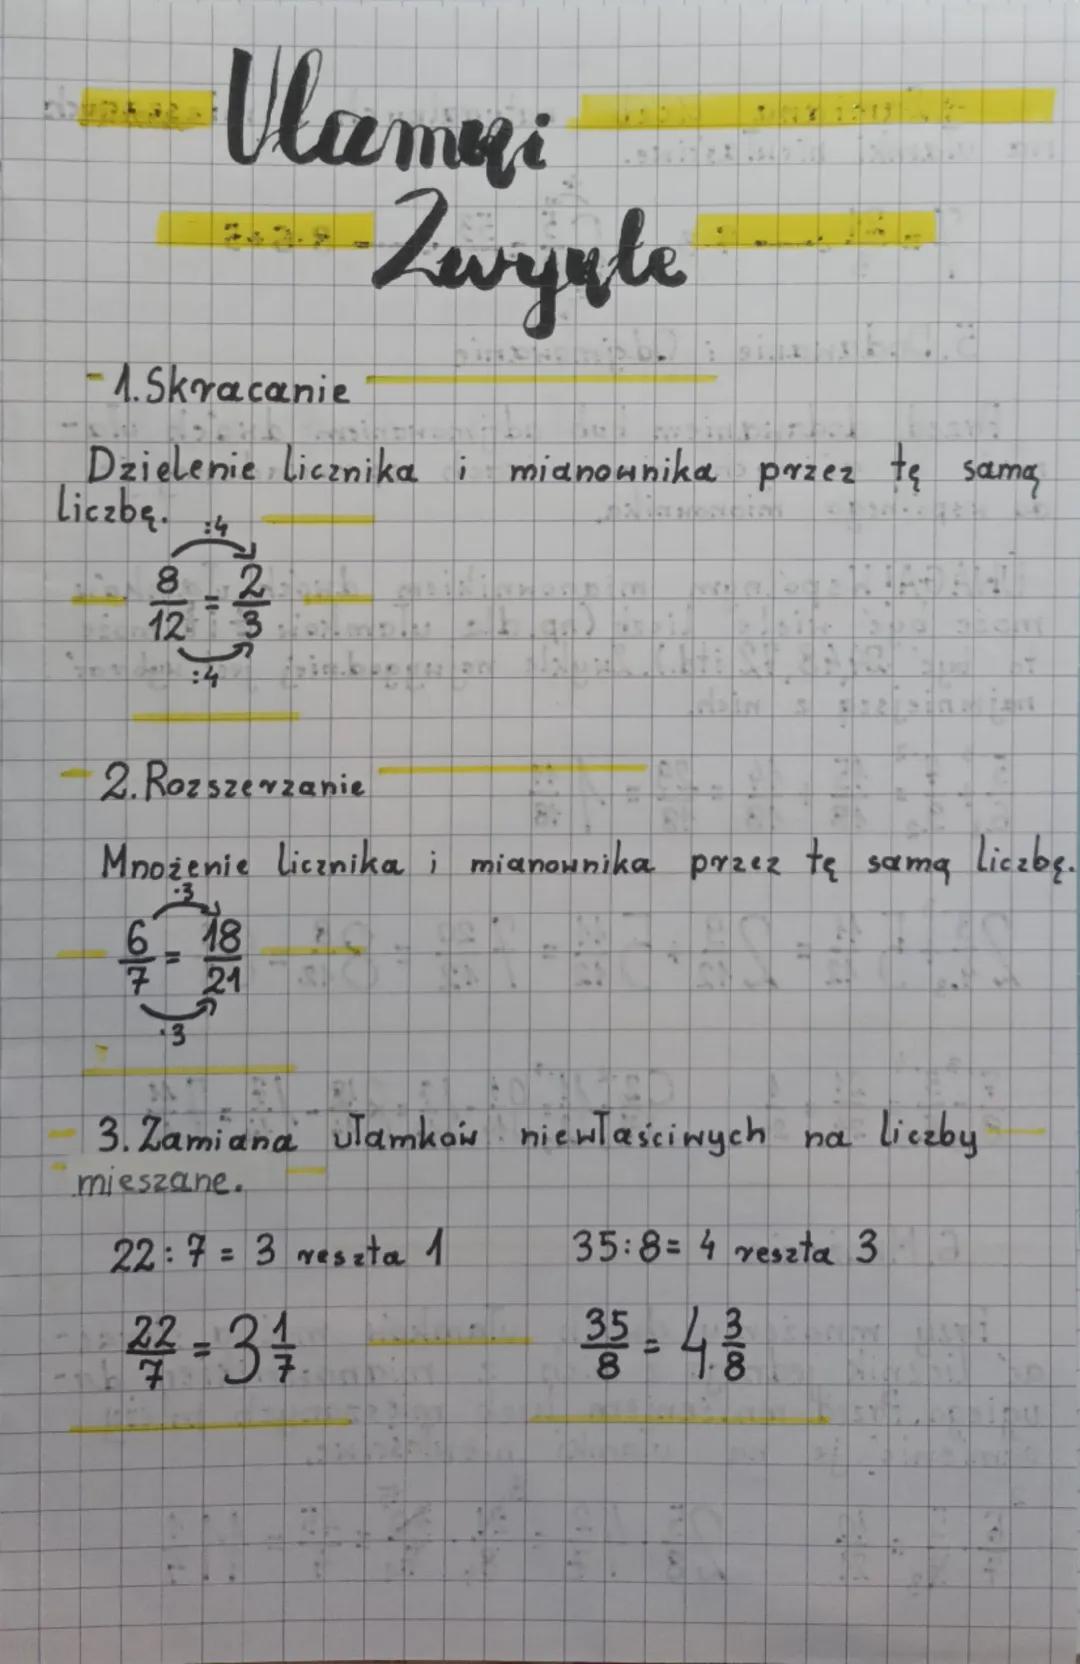 Ułamki
Zwykłe
1. Skracanie
Dzielenie licznika i mianownika przez tę samą
liczbę.
:4
8/12 = 2/3
:4
2. Rozszerzanie
Mnożenie licznika i mianownika przez tę samą liczbę.
·3
6/7 = 18/21
·3
3. Zamiana ułamków niewłaściwych na liczby
mieszane.
22:7 = 3 reszta 1 35:8 = 4 reszta 3
22/7 = 3 1/7 35/8 = 4 3/8